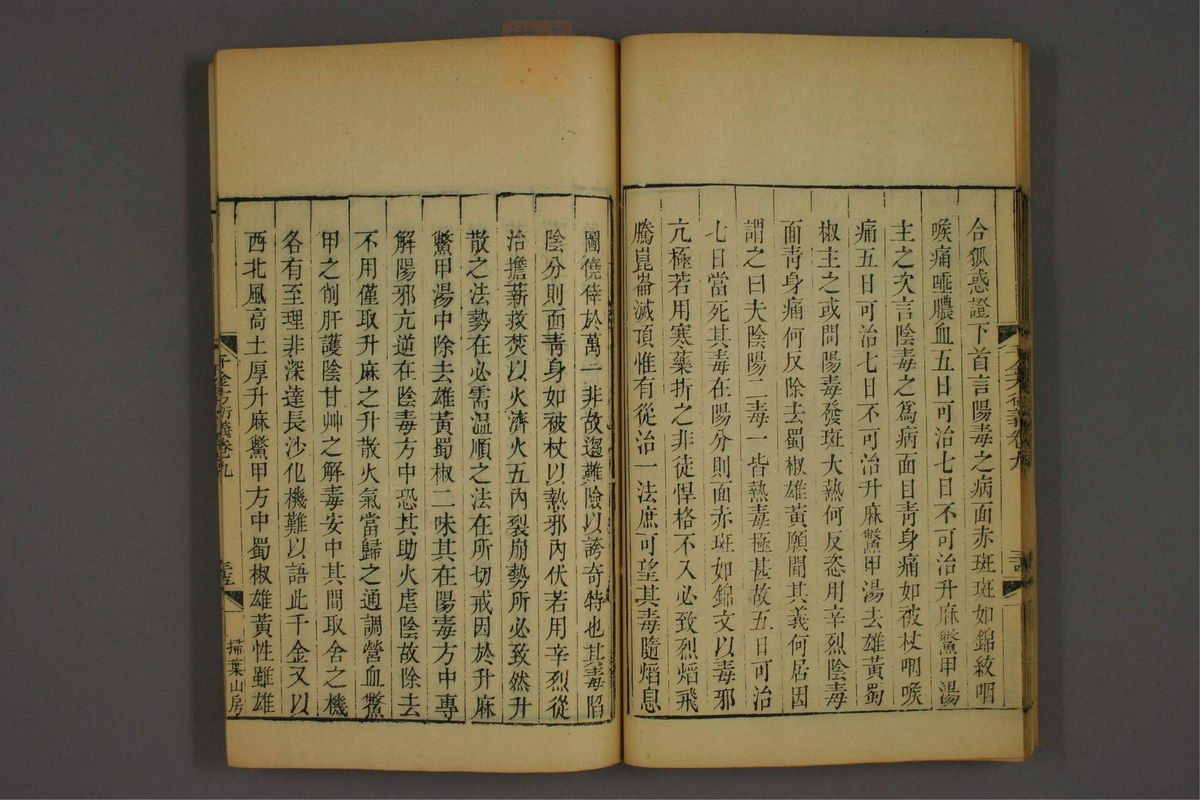 合狐惑證下首言陽毒之病面赤斑斑如錦紋咽
喉痛唾膿血五日可治七日不可治升麻鱉甲湯
主之次言陰毒之為病面目靑身痛如被杖咽喉
痛五日可治七日不可治升麻鱉甲湯去雄黃蜀
椒主之或問陽毒發斑大熱何反恣用辛烈陰毒
面靑身痛何反除去蜀椒雄黃願聞其義何居因
謂之曰夫陰陽二毒一皆熱毒極甚故五日可治
七日當死其毒在陽分則面赤斑如錦文以毒邪
亢極若用寒藥折之非徒悍格不入必致烈熖飛
騰崑崙滅頂惟有從治一法庶可望其毒隨熖息
圖僥倖於萬一非故遡難險以誇奇特也其毒陷
陰分則面靑身如被杖以熱邪內伏若用辛烈從
治擔薪救焚以火濟火五內裂崩勢所必致然升
散之法勢在必需溫順之法在所切戒因於升麻
鱉甲湯中除去雄黃蜀椒二味其在陽毒方中專
解陽邪亢逆在陰毒方中恐其助火虐陰故除去
不用僅取升麻之升散火氣當歸之通調營血鱉
甲之削肝護陰甘艸之解毒安中其間取舍之機
各有至理非深達長沙化機難以語此千金又以
西北風高土厚升麻鱉甲方中蜀椒雄黃性雖雄
千金方衍義卷九
三五
掃葉山房